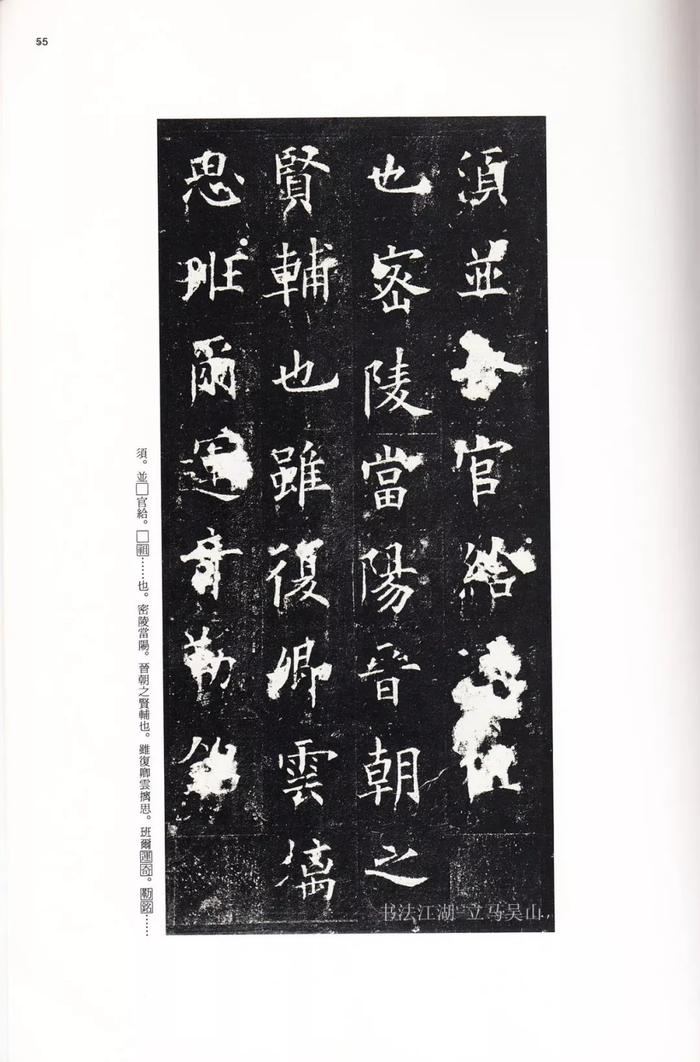 55
須並官給
也密陵當陽晉朝之
賢輔也雖復卿雲摛
思班爾運奇勒銘
須。並□官給。□祖……也。密陵當陽。晉朝之賢輔也。雖復卿雲摛思。班爾運奇。勒銘……
书法江湖 立马吴山